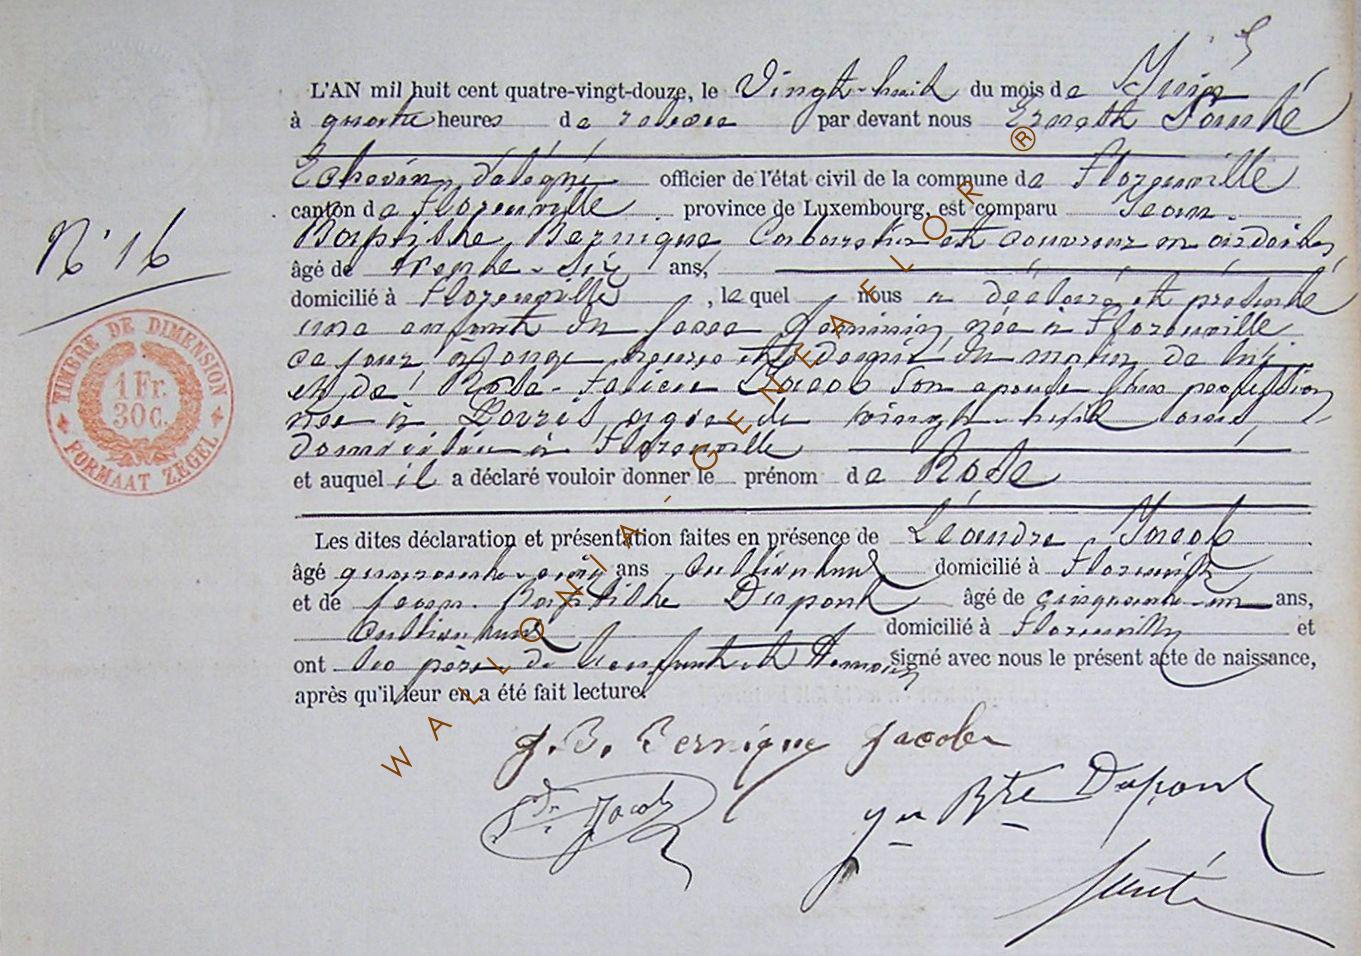 L'AN mil huit cent quatre-vingt-douze, le Vingt-huit du mois de Juin
à quatre heures de relevée par devant nous Ernest
Echevin délégué officier de l'état civil de la commune de Florenville
canton de Florenville province de Luxembourg, est comparu Jean
Baptiste Bernique Cabaretier et couvreur en ardoises
N° 16
âgé de trente-six ans,
domicilié à Florenville, lequel nous a déclaré et présenté
une enfant du sexe féminin, née à Florenville
ce jour à onze heures et demie du matin, de lui
et de Rose Jacob son épouse sans profession
née à agée de vingt-huit ans,
domiciliée à Florenville
et auquel il a déclaré vouloir donner le prénom de Rose
TIMBRE DE DIMENSION
1 Fr.
30 C.
FORMAAT ZEGEL
Les dites déclaration et présentation faites en présence de Léandre Jacob
âgé quarante-cinq ans Cultivateur domicilié à Florenville
et de Jean-Baptiste Dupont âgé de cinquante-un ans,
Cultivateur domicilié à Florenville et
ont les père de l'enfant et témoins signé avec nous le présent acte de naissance,
après qu'il leur en a été fait lecture.
J. B. Bernique Jacob
Jacob
Jn Bte Dupont
WALLONIA - GENEAFLOR ®